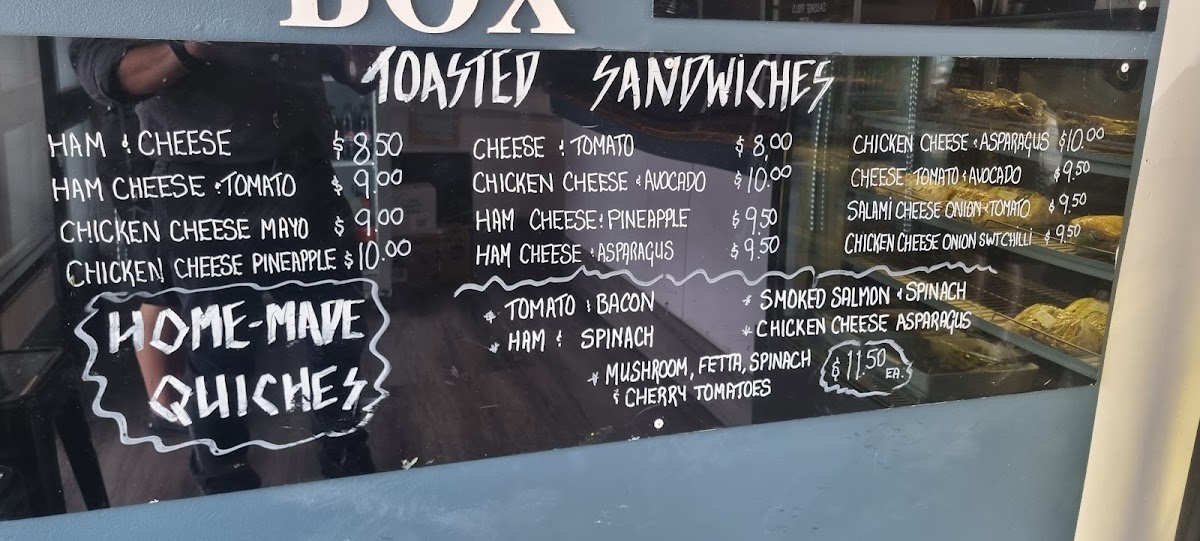 BOX
TOASTED SANDWICHES
HAM & CHEESE $8.50
HAM CHEESE & TOMATO $9.00
CHICKEN CHEESE MAYO $9.00
CHICKEN CHEESE PINEAPPLE $10.00
CHEESE & TOMATO $8.00
CHICKEN CHEESE & AVOCADO $10.00
HAM CHEESE & PINEAPPLE $9.50
HAM CHEESE & ASPARAGUS $9.50
CHICKEN CHEESE & ASPARAGUS $10.00
CHEESE TOMATO & AVOCADO $9.50
SALAMI CHEESE ONION & TOMATO $9.50
CHICKEN CHEESE ONION SWT CHILLI $9.50
HOME-MADE
QUICHES
* TOMATO & BACON
* HAM & SPINACH
* MUSHROOM, FETTA, SPINACH
& CHERRY TOMATOES
* SMOKED SALMON & SPINACH
* CHICKEN CHEESE ASPARAGUS
$11.50 EA.